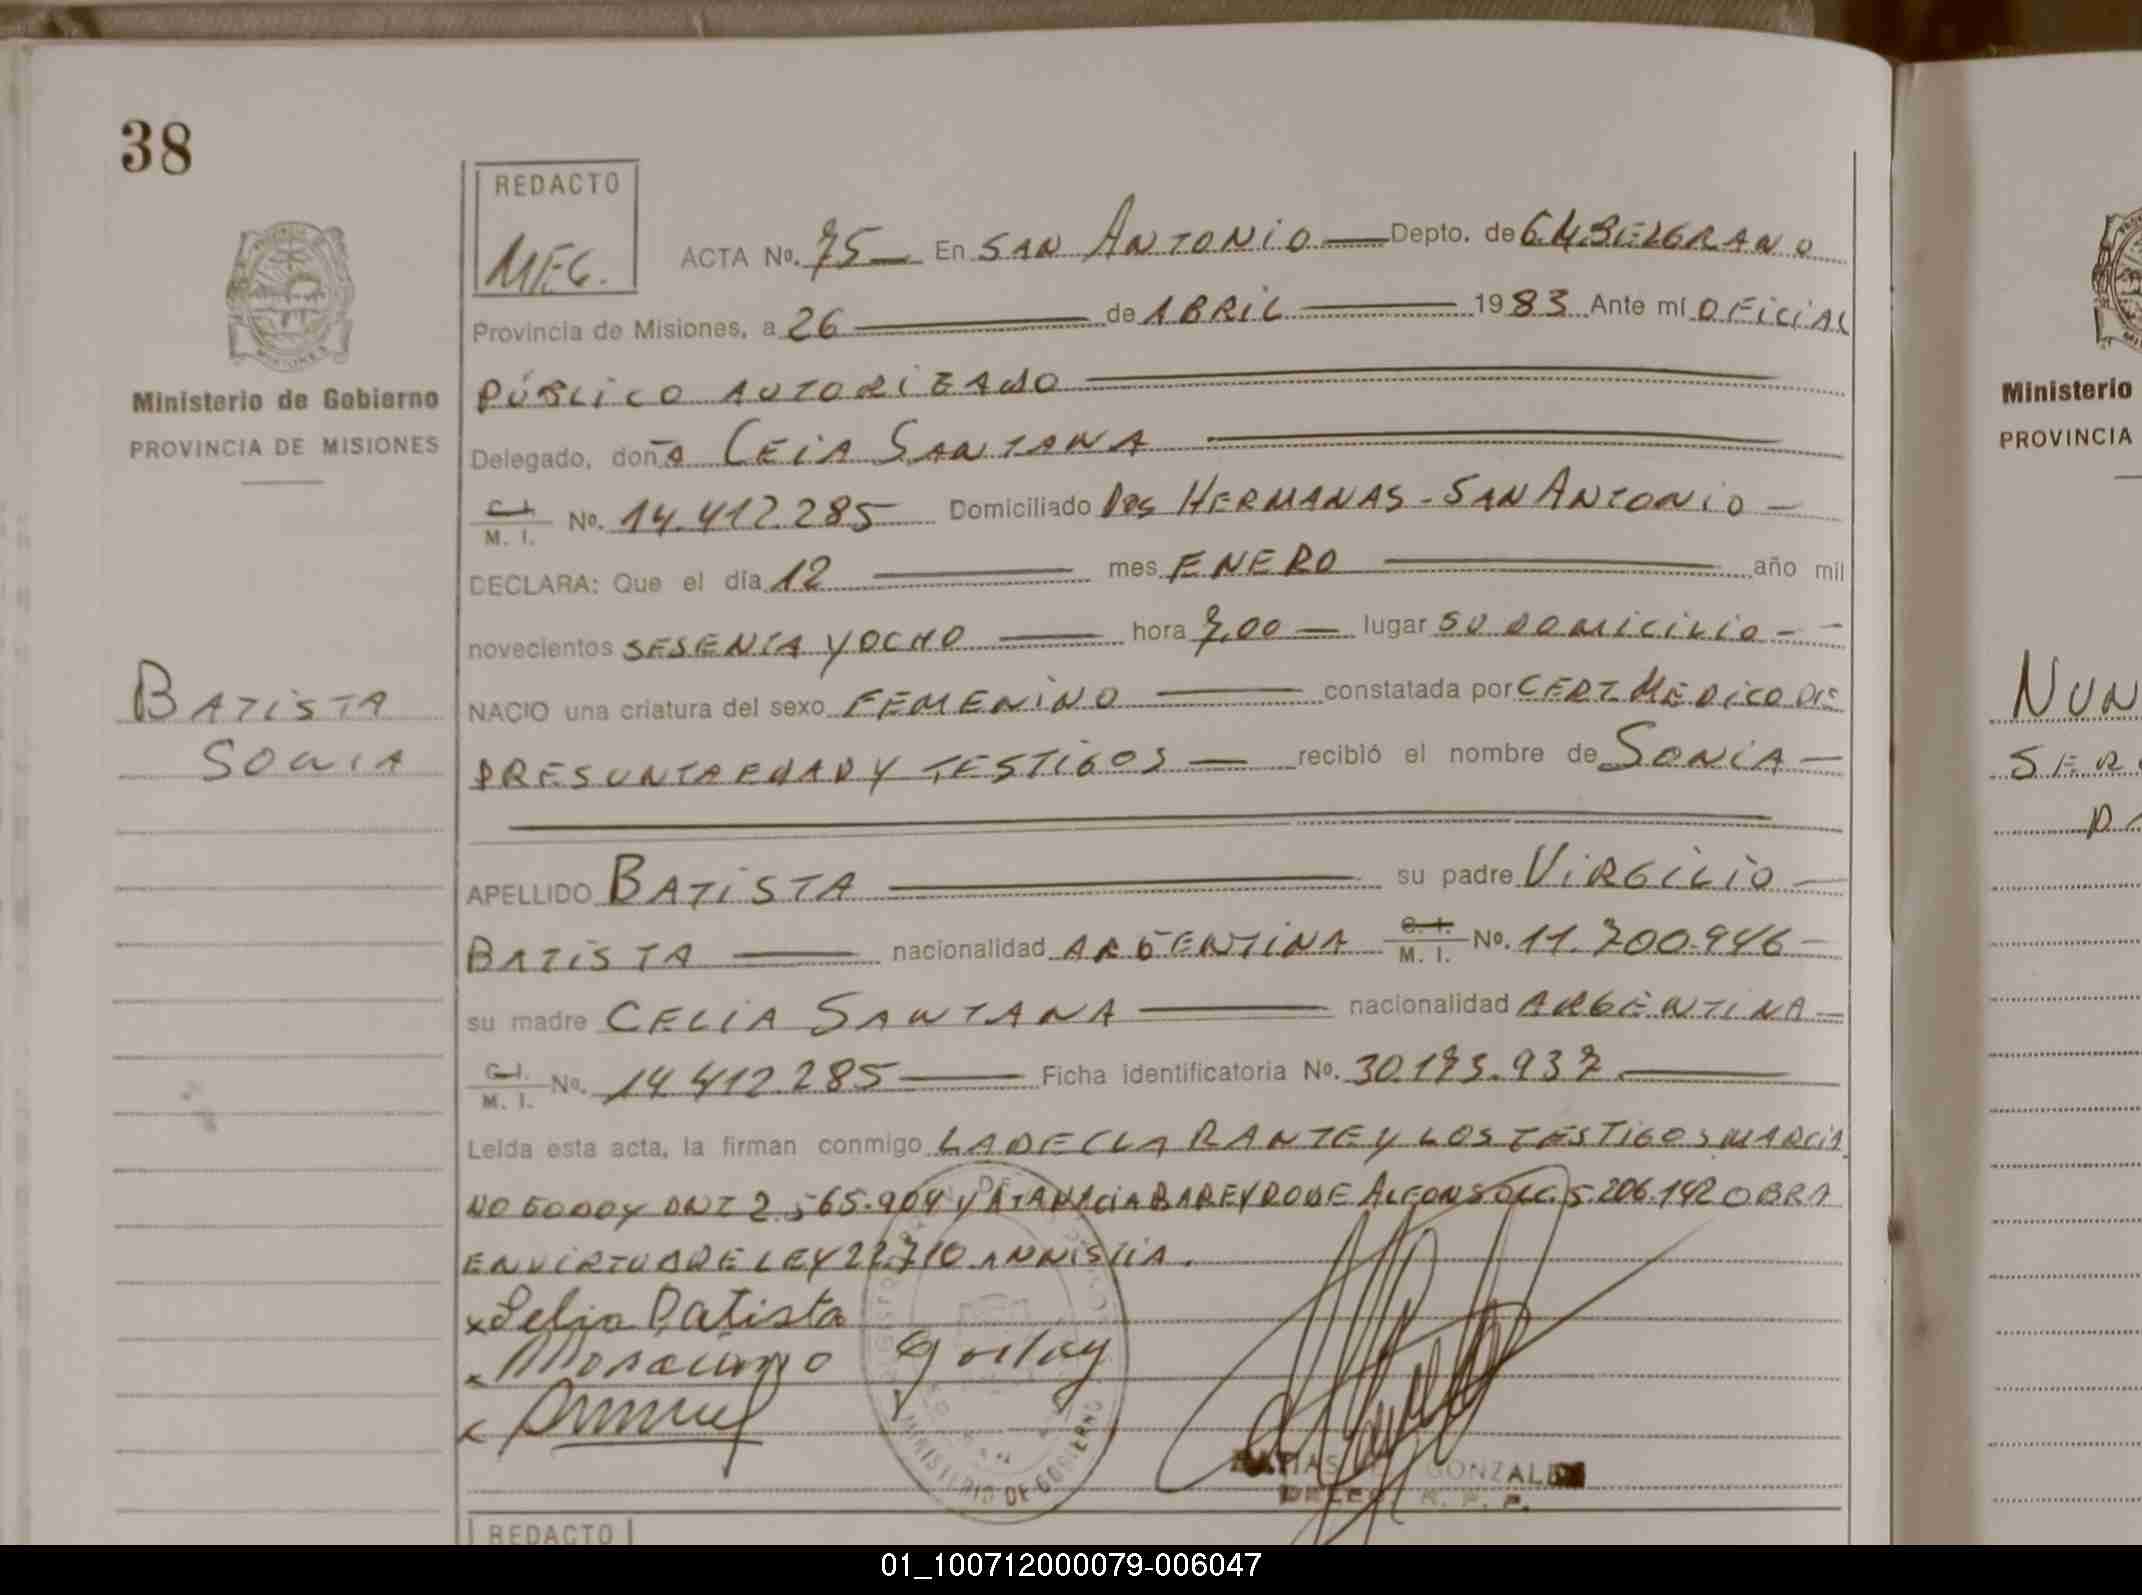 38
REDACTO
MEG.
ACTA No. 75 En SAN ANTONIO Depto. de G.M.BELGRANO
Provincia de Misiones, a 26 de ABRIL 1983 Ante mí OFICIAL
PÚBLICO AUTORIZADO
Ministerio de Gobierno
PROVINCIA DE MISIONES
Delegado, doñA CEIA SANTANA
C. I.
M. I. No. 14.412.285 Domiciliado Dos HERMANAS - SAN ANTONIO
DECLARA: Que el día 12 mes ENERO año mil
novecientos SESENTA Y OCHO hora 7,00 lugar SU DOMICILIO
BATISTA
SONIA
NACIO una criatura del sexo FEMENINO constatada por CERT. MEDICO DE
PRESUNTA EDAD Y TESTIGOS recibió el nombre de SONIA
APELLIDO BATISTA su padre VIRGILIO
BATISTA nacionalidad ARGENTINA C. I. M. I. No. 11.700.946
su madre CELIA SANTANA nacionalidad ARGENTINA
C. I.
M. I. No. 14.412.285 Ficha identificatoria No. 30.173.937
Leída esta acta, la firman conmigo LA DECLARANTE Y LOS TESTIGOS MARCIA
NO GODOY DNI 2.565.904 Y ATANACIA BAREYRO DE ALFONSO L.C. 5.206.142 OBRA
EN VIRTUD DE LEY 22.710 AMNISTIA.
x Selia Batista
x Morcumo godoy
x
MINISTERIO DE GOBIERNO
GONZALE
DELEG. R. P. P.
REDACTO
Ministerio
PROVINCIA
NUN
SER
01_100712000079-006047